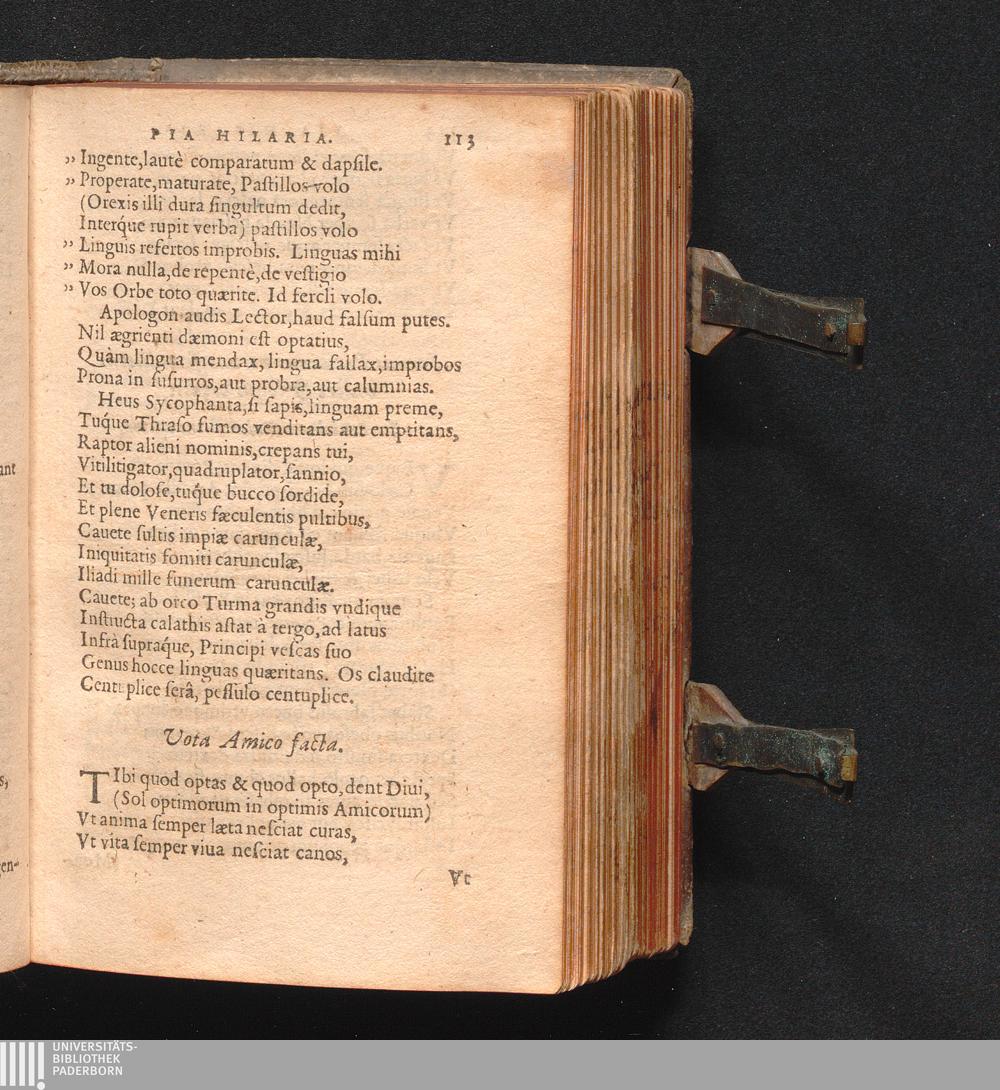 PIA HILARIA. 113
,, Ingente,lautè comparatum & dapſile.
,, Properate,maturate, Paſtillos volo
(Orexis illi dura ſingultum dedit,
Interq́ue rupit verba) paſtillos volo
,, Linguis refertos improbis. Linguas mihi
,, Mora nulla,de repentè,de veſtigio
,, Vos Orbe toto quærite. Id fercli volo.
Apologon audis Lector,haud falſum putes.
Nil ægrienti dæmoni eſt optatius,
Quàm lingua mendax, lingua fallax,improbos
Prona in ſuſurros,aut probra,aut calumnias.
Heus Sycophanta,ſi ſapis,linguam preme,
Tuq́ue Thraſo fumos venditans aut emptitans,
Raptor alieni nominis,crepans tui,
Vitilitigator,quadruplator,ſannio,
Et tu doloſe,tuq́ue bucco ſordide,
Et plene Veneris fæculentis pultibus,
Cauete ſultis impiæ carunculæ,
Iniquitatis fomiti carunculæ,
Iliadi mille funerum carunculæ.
Cauete; ab orco Turma grandis vndique
Inſtructa calathis aſtat à tergo,ad latus
Infrà ſupraq́ue, Principi veſcas ſuo
Genus hocce linguas quæritans. Os claudite
Centuplice ſerâ, peſſulo centuplice.
Vota Amico facta.
TIbi quod optas & quod opto,dent Diui,
(Sol optimorum in optimis Amicorum)
Vt anima ſemper læta neſciat curas,
Vt vita ſemper viua neſciat canos,
Vt
ant
s,
en-
UNIVERSITÄTS-
BIBLIOTHEK
PADERBORN